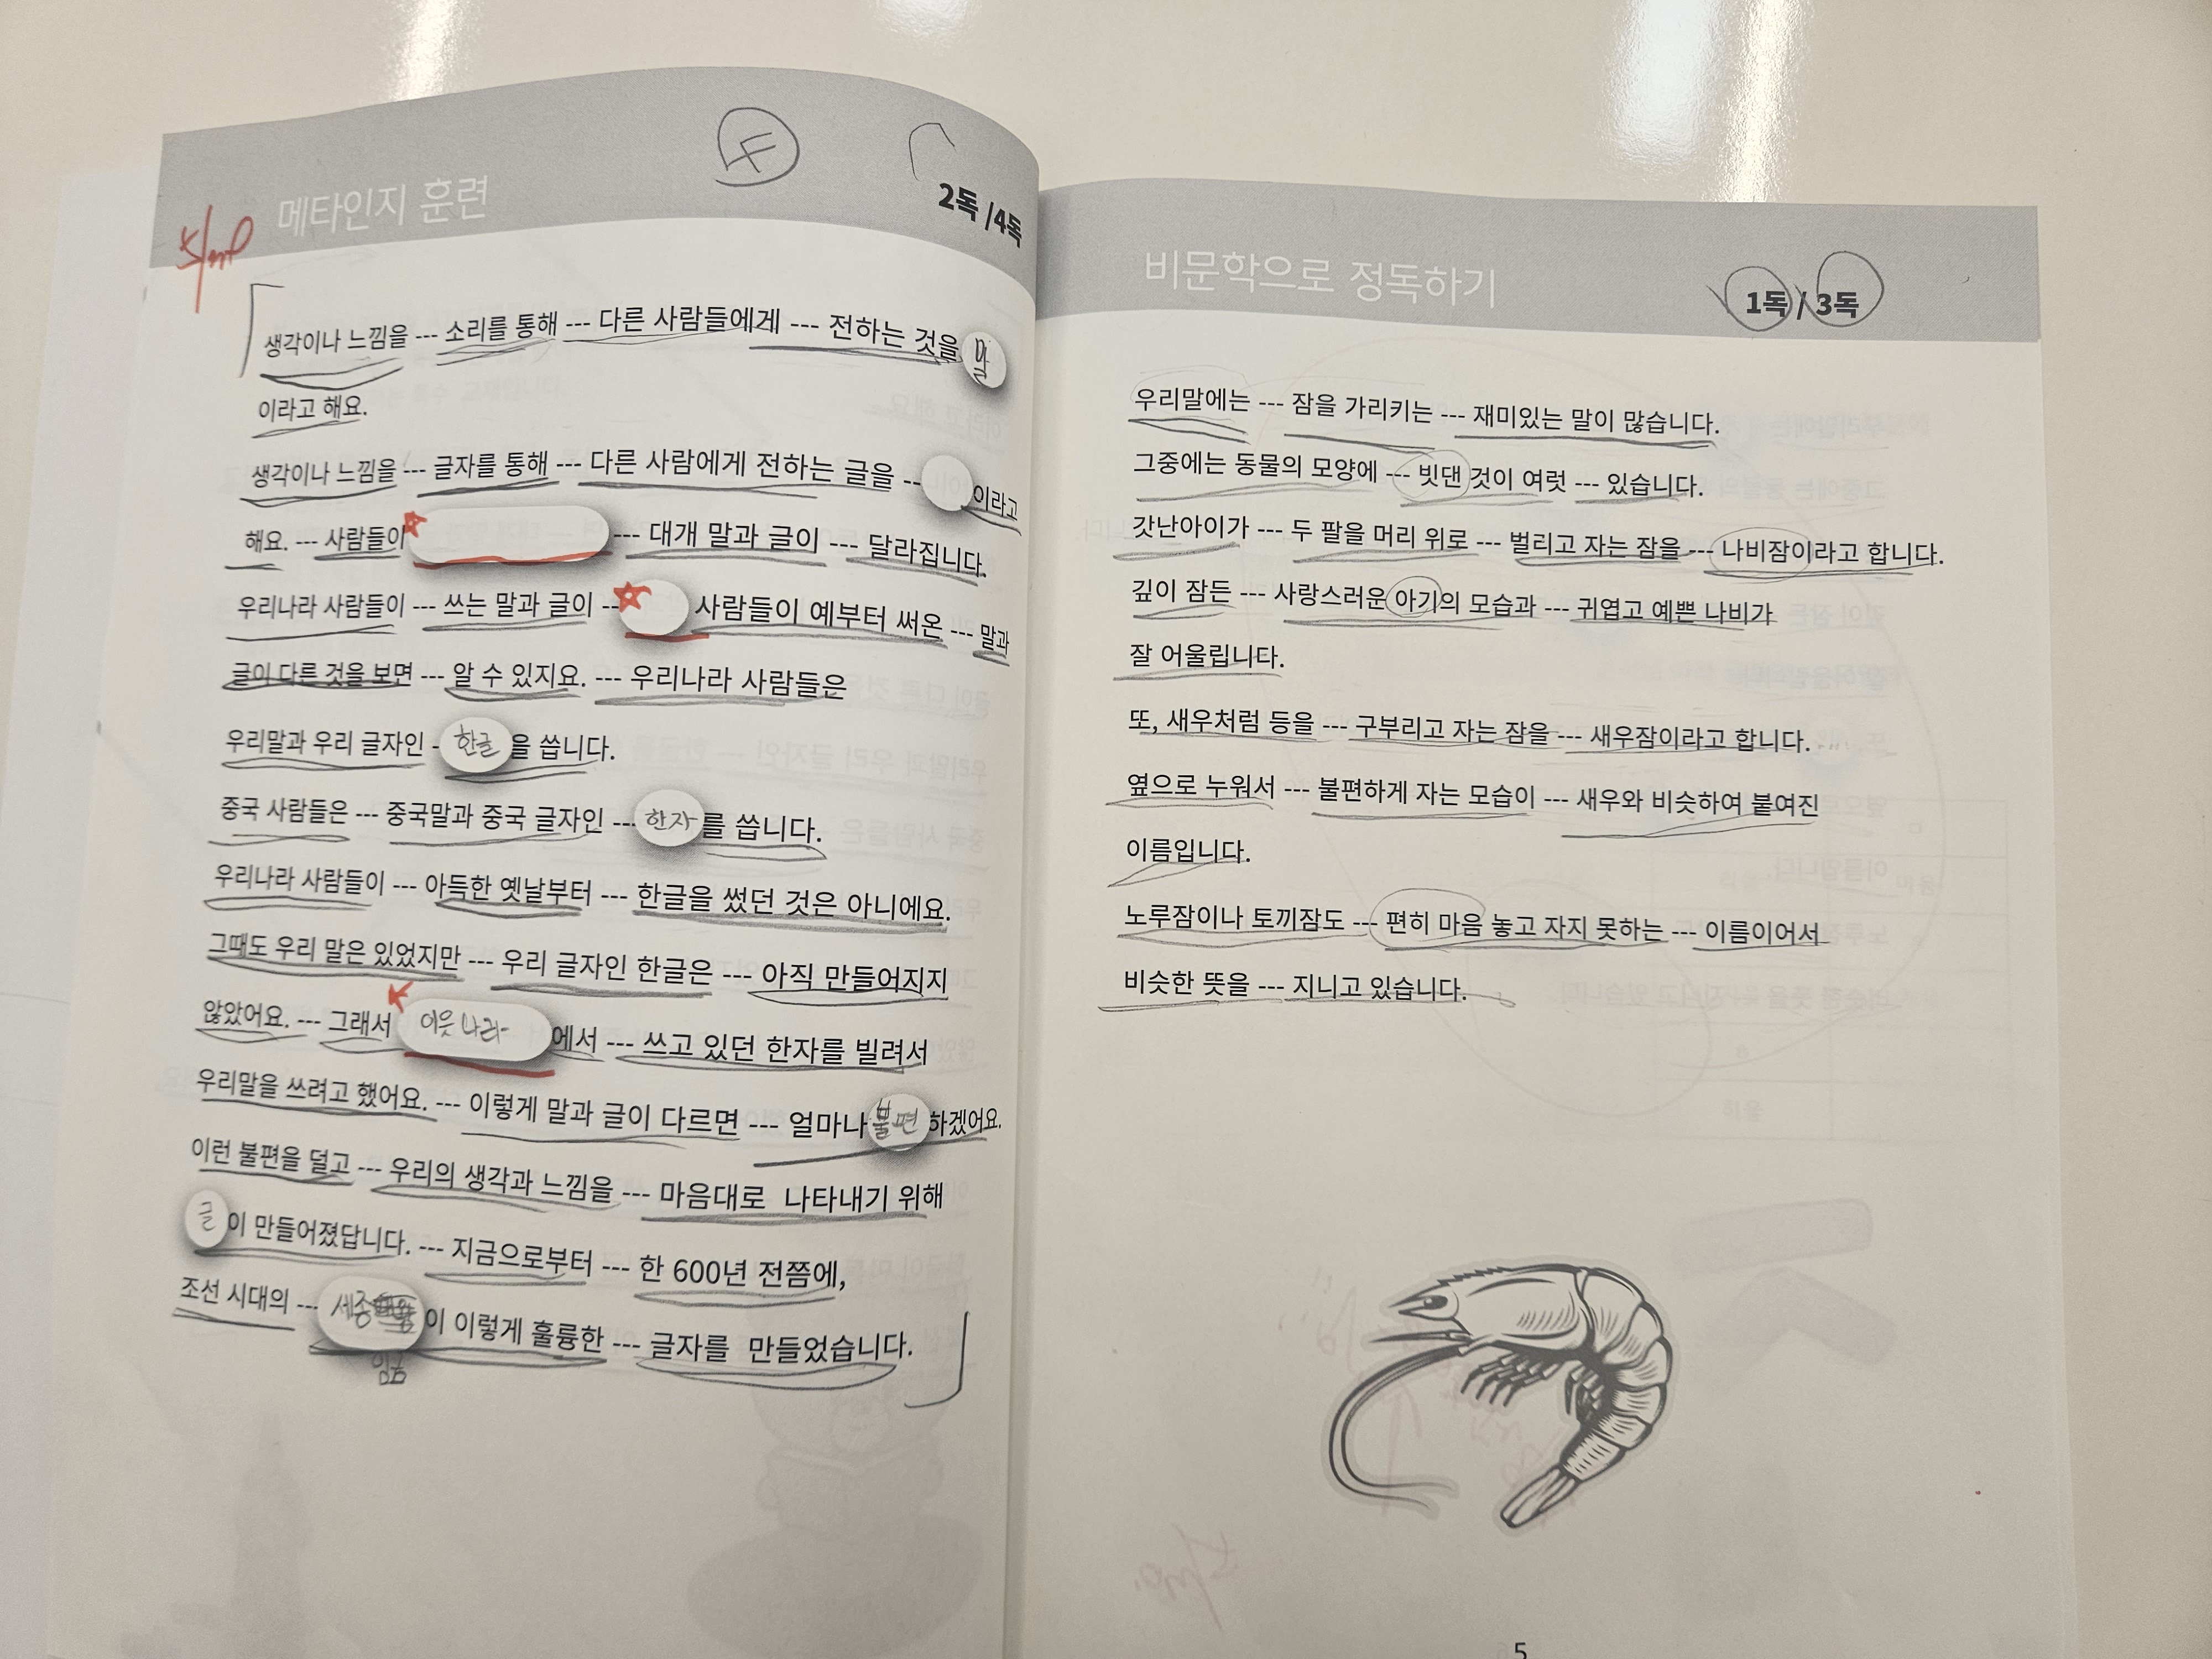 메타인지 훈련
2독 /4독
생각이나 느낌을 --- 소리를 통해 --- 다른 사람들에게 --- 전하는 것을 말
이라고 해요.
생각이나 느낌을 --- 글자를 통해 --- 다른 사람에게 전하는 글을 -- 이라고
해요. --- 사람들이 --- 대개 말과 글이 --- 달라집니다.
우리나라 사람들이 --- 쓰는 말과 글이 -- 사람들이 예부터 써온 --- 말과
글이 다른 것을 보면 --- 알 수 있지요. --- 우리나라 사람들은
우리말과 우리 글자인 - 한글 을 씁니다.
중국 사람들은 --- 중국말과 중국 글자인 --- 한자 를 씁니다.
우리나라 사람들이 --- 아득한 옛날부터 --- 한글을 썼던 것은 아니에요.
그때도 우리 말은 있었지만 --- 우리 글자인 한글은 --- 아직 만들어지지
않았어요. --- 그래서 이웃 나라 에서 --- 쓰고 있던 한자를 빌려서
우리말을 쓰려고 했어요. --- 이렇게 말과 글이 다르면 --- 얼마나 불편 하겠어요.
이런 불편을 덜고 --- 우리의 생각과 느낌을 --- 마음대로 나타내기 위해
글 이 만들어졌답니다. --- 지금으로부터 --- 한 600년 전쯤에,
조선 시대의 --- 세종 이 이렇게 훌륭한 --- 글자를 만들었습니다.
임금
비문학으로 정독하기
1독 / 3독
우리말에는 --- 잠을 가리키는 --- 재미있는 말이 많습니다.
그중에는 동물의 모양에 --- 빗댄 것이 여럿 --- 있습니다.
갓난아이가 --- 두 팔을 머리 위로 --- 벌리고 자는 잠을 --- 나비잠이라고 합니다.
깊이 잠든 --- 사랑스러운 아기의 모습과 --- 귀엽고 예쁜 나비가
잘 어울립니다.
또, 새우처럼 등을 --- 구부리고 자는 잠을 --- 새우잠이라고 합니다.
옆으로 누워서 --- 불편하게 자는 모습이 --- 새우와 비슷하여 붙여진
이름입니다.
노루잠이나 토끼잠도 --- 편히 마음 놓고 자지 못하는 --- 이름이어서
비슷한 뜻을 --- 지니고 있습니다.
5